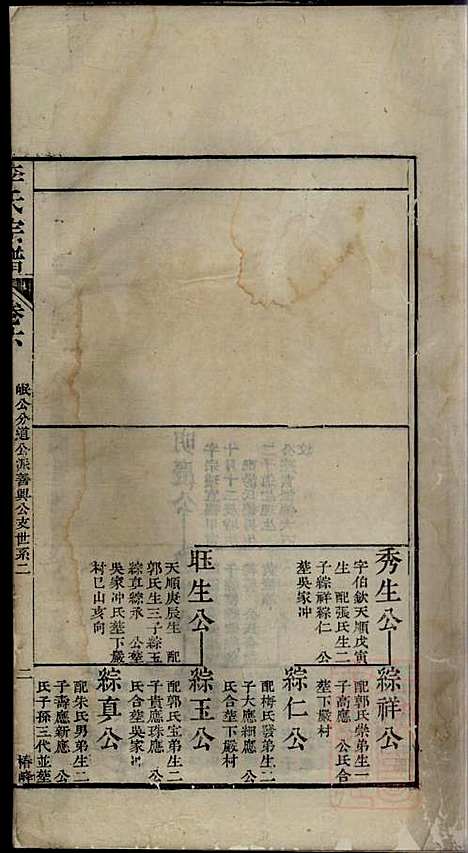 秀生公
字伯欽天順戊寅
生 配張氏生二
子綜祥綜仁 公
塟吳家冲
綜祥公
配郭氏崇弟生一
子高應 公氏合
塟下嚴村
綜仁公
配梅氏發弟生二
子大應細應 公
氏合塟下嚴村
生公
天順庚辰生 配
郭氏生三子綜玉
綜真綜承 公塟
吳家冲氏塟下嚴
村巳山亥向
綜玉公
配郭氏宝弟生二
子貴應珠應 公
氏合塟吳家冲
綜真公
配朱氏男弟生二
子壽應新應 公
氏子孫三代並塟
李氏宗譜
卷六
岷公分道公派善興公支世系二
二
椿